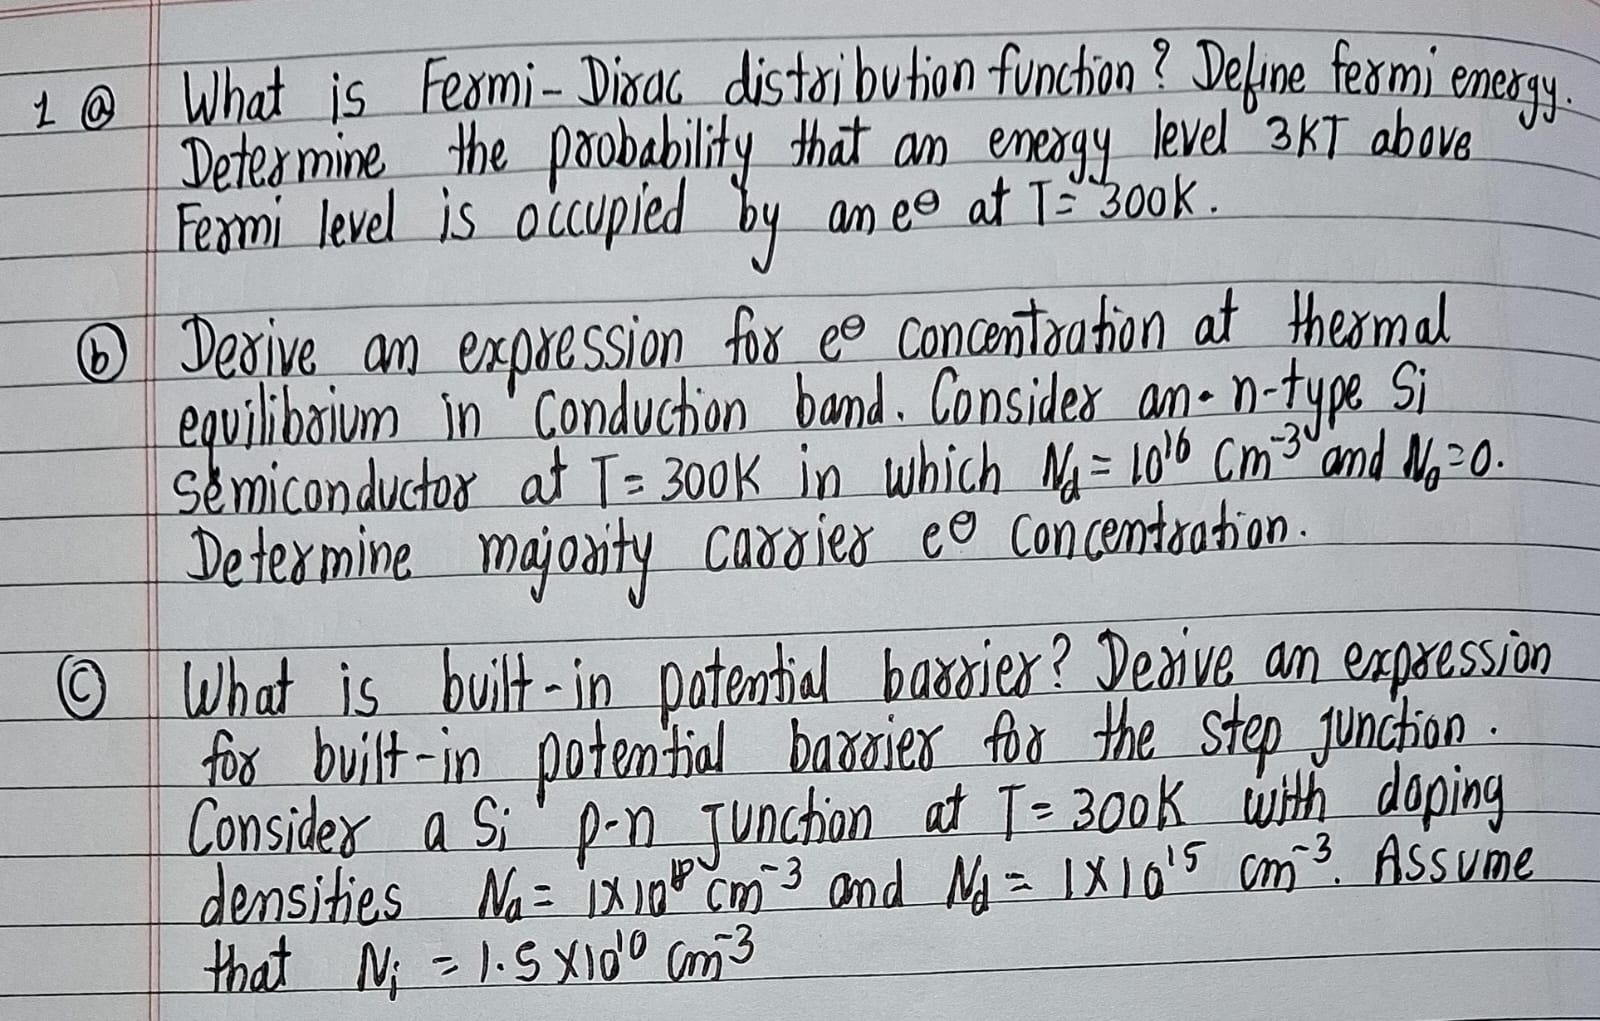 1 ⓐ What is Fermi-Dirac distribution function? Define fermi energy.
Determine the probability that an energy level 3KT above
Fermi level is occupied by an e⊖ at T= 300K.
ⓑ Derive an expression for e⊖ concentration at thermal
equilibrium in conduction band. Consider an n-type Si
semiconductor at T= 300K in which Nd = 10¹⁶ cm⁻³ and Na=0.
Determine majority carrier e⊖ concentration.
ⓒ What is built-in potential barrier? Derive an expression
for built-in potential barrier for the step junction.
Consider a Si p-n junction at T= 300K with doping
densities Na = 1×10 cm⁻³ and Nd = 1×10¹⁵ cm⁻³. Assume
that Ni = 1.5×10¹⁰ cm⁻³